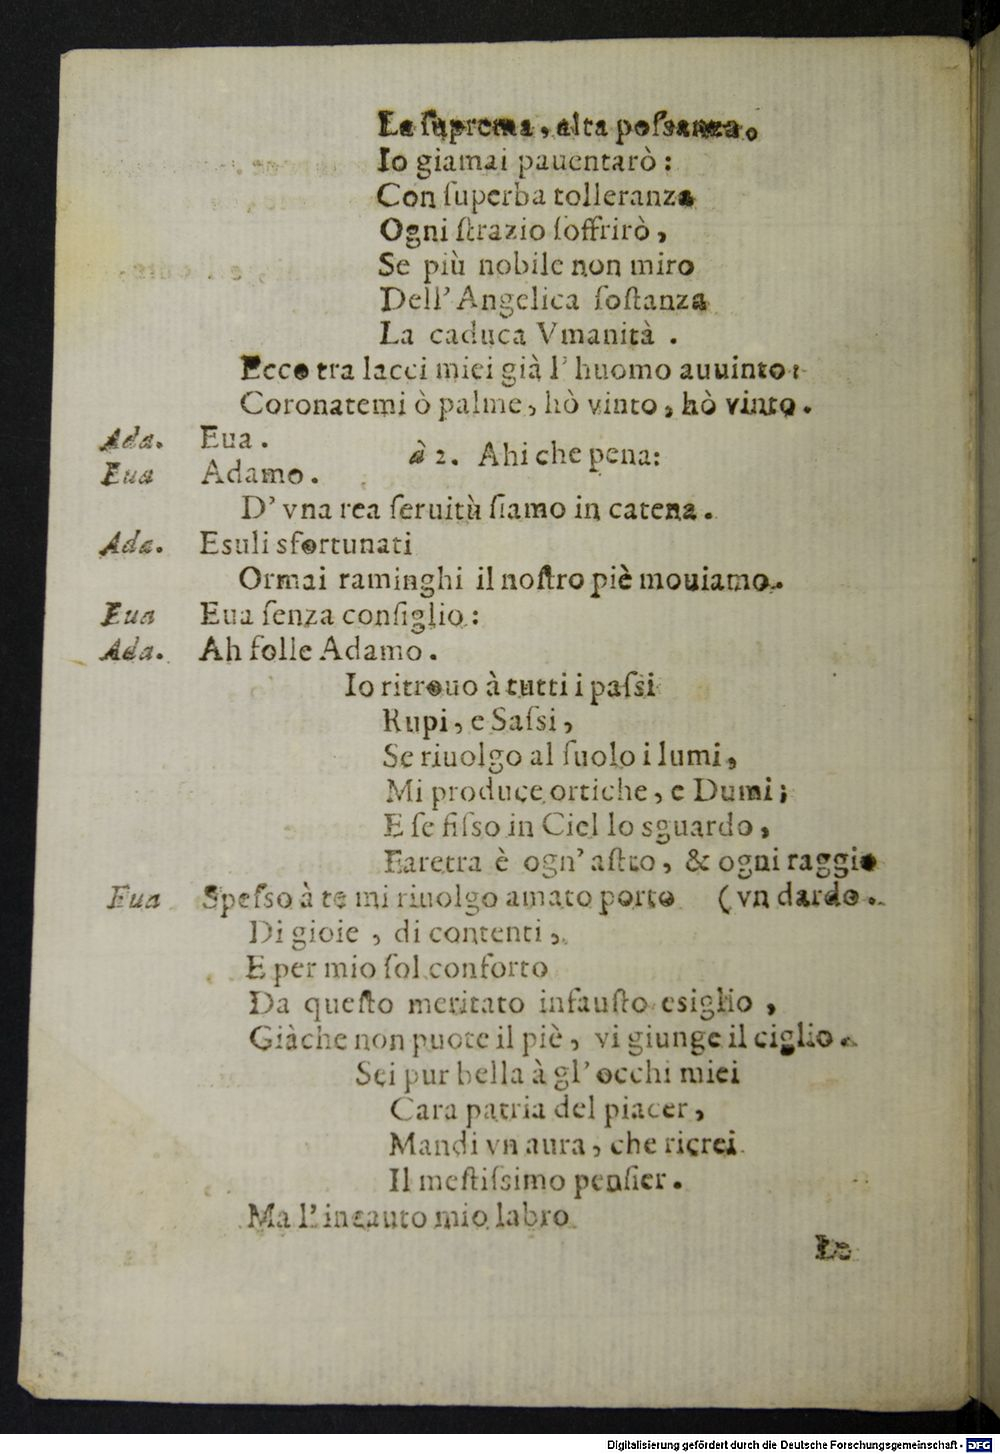 La ſuprema, alta poſsanza.
Io giamai pauentarò:
Con ſuperba tolleranza
Ogni ſtrazio ſoffrirò,
Se più nobile non miro
Dell' Angelica ſoſtanza
La caduca Vmanità.
Ecco tra lacci miei già l' huomo auuinto:
Coronatemi ò palme, hò vinto, hò vinto.
Ada. Eua.
à 2. Ahi che pena:
Eua Adamo.
D' vna rea ſeruitù ſiamo in catena.
Ada. Esuli sfortunati
Ormai raminghi il noſtro piè mouiamo.
Eua Eua ſenza conſiglio:
Ada. Ah folle Adamo.
Io ritrouo à tutti i paſsi
Rupi, e Saſsi,
Se riuolgo al ſuolo i lumi,
Mi produce ortiche, e Dumi;
E ſe fiſso in Ciel lo sguardo,
Faretra è ogn' aſtro, & ogni raggio
Eua Speſso à te mi riuolgo amato porto (vn dardo.
Di gioie, di contenti,
E per mio ſol conforto
Da queſto meritato infauſto esiglio,
Giàche non puote il piè, vi giunge il ciglio.
Sei pur bella à gl' occhi miei
Cara patria del piacer,
Mandi vn aura, che ricrei
Il meſtiſsimo penſier.
Ma l' incauto mio labro
Le
Digitalisierung gefördert durch die Deutsche Forschungsgemeinschaft - DFG